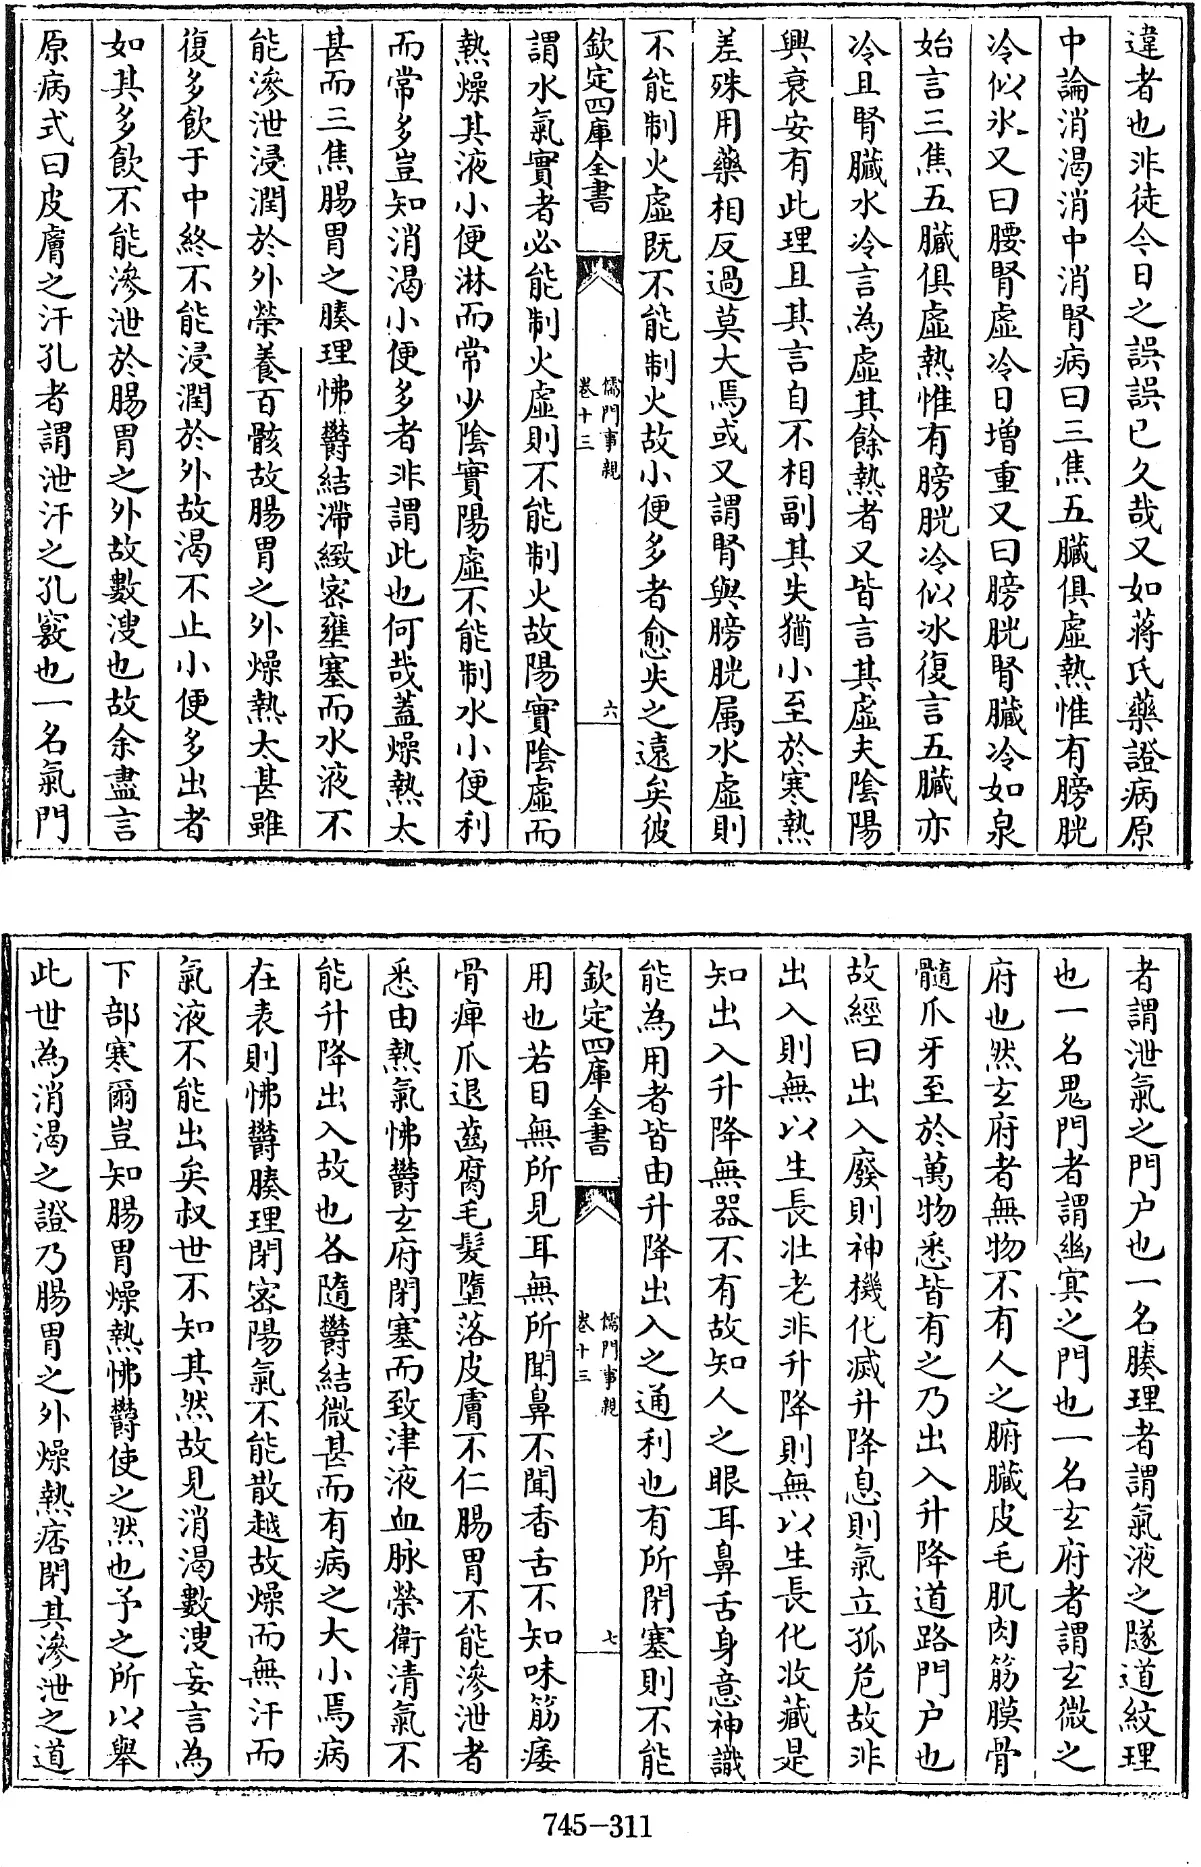 違者也非徒今日之誤誤已久哉又如蔣氏藥證病原
中論消渴消中消腎病曰三焦五臟俱虛熱惟有膀胱
冷似氷又曰腰腎虛冷日增重又曰膀胱腎臟冷如泉
始言三焦五臟俱虛熱惟有膀胱冷似冰復言五臟亦
冷且腎臟水冷言為虛其餘熱者又皆言其虛夫陰陽
興衰安有此理且其言自不相副其失猶小至於寒熱
差殊用藥相反過莫大焉或又謂腎與膀胱属水虛則
不能制火虛既不能制火故小便多者愈失之遠矣彼
欽定四庫全書
儒門事親
卷十三
六
謂水氣實者必能制火虛則不能制火故陽實陰虛而
熱燥其液小便淋而常少陰實陽虛不能制水小便利
而常多豈知消渴小便多者非謂此也何哉蓋燥熱太
甚而三焦腸胃之腠理怫鬱結滯緻密壅塞而水液不
能滲泄浸潤於外榮養百骸故腸胃之外燥熱太甚雖
復多飲于中終不能浸潤於外故渴不止小便多出者
如其多飲不能滲泄於腸胃之外故數溲也故余盡言
原病式曰皮膚之汗孔者謂泄汗之孔竅也一名氣門
者謂泄氣之門户也一名腠理者謂氣液之隧道紋理
也一名鬼門者謂幽冥之門也一名玄府者謂玄微之
府也然玄府者無物不有人之腑臟皮毛肌肉筋膜骨
髓爪牙至於萬物悉皆有之乃出入升降道路門户也
故經曰出入廢則神機化滅升降息則氣立孤危故非
出入則無以生長壯老非升降則無以生長化收藏是
知出入升降無器不有故知人之眼耳鼻舌身意神識
能為用者皆由升降出入之通利也有所閉塞則不能
欽定四庫全書
儒門事親
卷十三
七
用也若目無所見耳無所聞鼻不聞香舌不知味筋痿
骨痺爪退齒腐毛髮墮落皮膚不仁腸胃不能滲泄者
悉由熱氣怫鬱玄府閉塞而致津液血脉榮衛清氣不
能升降出入故也各隨鬱結微甚而有病之大小焉病
在表則怫鬱腠理閉密陽氣不能散越故燥而無汗而
氣液不能出矣叔世不知其然故見消渴數溲妄言為
下部寒爾豈知腸胃燥熱怫鬱使之然也予之所以舉
此世為消渴之證乃腸胃之外燥熱痞閉其滲泄之道
745-311